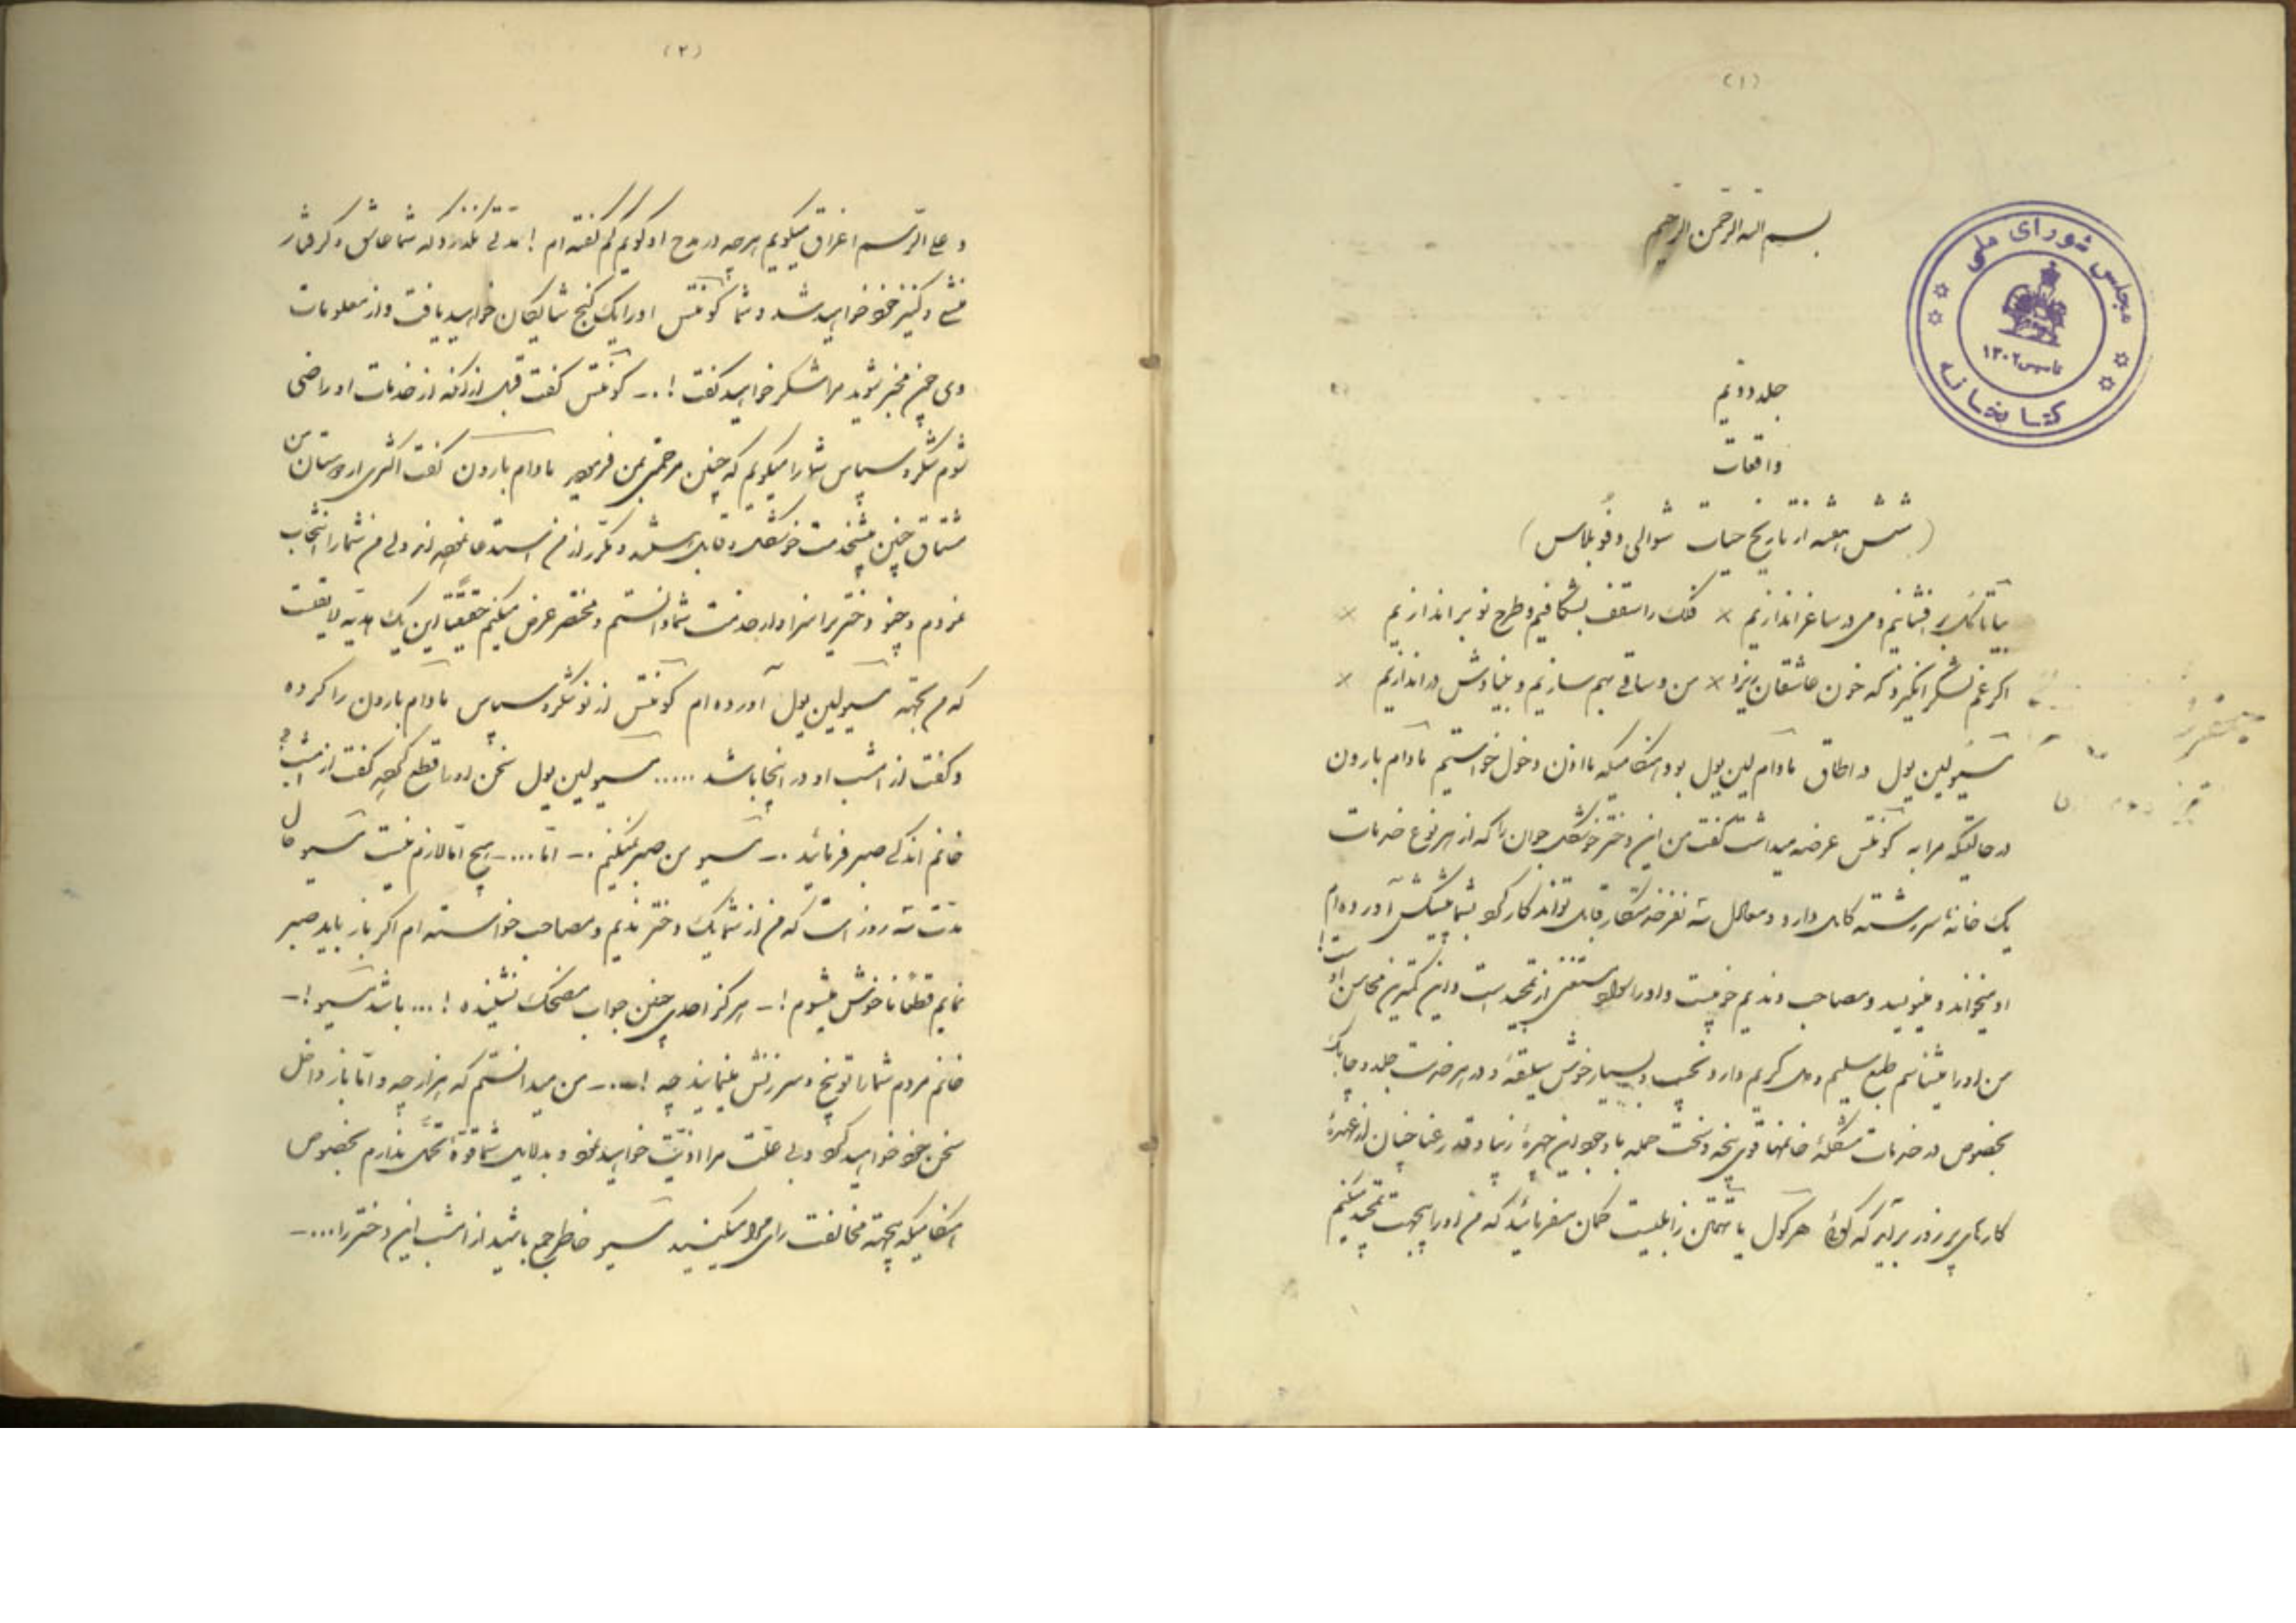 (۱)
بسم الله الرحمن الرحیم
مجلس شورای ملی
تاسیس ۱۳۰۲
کتابخانه
جلد دویم
واقعات
(شش هفته از تاریخ حیات شوالی دو فوبلاس)
بیا تا گل برافشانیم و می در ساغر اندازیم × فلک را سقف بشکافیم و طرح نو براندازیم ×
اگر غم لشگر انگیزد که خون عاشقان ریزد × من و ساقی بهم سازیم و بنیادش براندازیم ×
مسیو لین یول در اطاق مادام لین یول بود هنگامیکه ما اذن دخول خواستیم مادام بارون
در حالتیکه مرا به کونتس عرضه میداشت گفت من این دختر خوشگل جوان را که از هر نوع خدمات
یک خانه سررشته کامل دارد و معادل سه نفر خدمتکار قابل تواند کار کرد بشما پیشکش آورده‌ام
او میخواند و مینویسد و مصاحب و ندیم خوبیست و او را احوال مستغنی از تمجید است و این کمترین محاسن اوست!
من او را میشناسم طبع سلیم و دل کریم دارد نجیب و بسیار خوش سلیقه و در هر خدمت جلد و چابک
بخصوص در خدمات مشکله خانمها قوی پنجه و سخت حمله با وجود این چهرهٔ زیبا و قد رعنا چنان از عهدهٔ
کارهای پر زور برآید که گوئی هرکول یا تهمتن زابلیست گمان مفرمائید که من او را بیجهت تمجید میکنم
(۲)
و علی الرسم اغراق میگویم هرچه در مدح او گویم کم گفته ام ! شما عاشق و گرفتار
منشی و کنیز خود خواهید شد و شما کونتس او را یک گنج شایگان خواهید یافت و از معلومات
وی چون مخبر شوید مرا تشکر خواهید گفت !.- کونتس گفت قبل از آنکه از خدمات او راضی
شوم شکر و سپاس شما را میگویم که چنین مرحمتی بمن فرمودید مادام بارون گفت اکثری از دوستان من
مشتاق چنین پیشخدمت خوشگل و قابل هستند و مکرر از من استدعا نموده‌اند ولی من شما را انتخاب
نمودم و چنین دختریرا سزاوار خدمت شما دانستم و مختصر عرض میکنم حقیقتا این یک هدیه لایقست
که من بجهة مسیو لین یول آورده ام کونتس از نو شکر و سپاس مادام بارون را کرده
و گفت از امشب او در اینجا باشد ..... مسیو لین یول سخن او را قطع کرده گفت از امشب؟
خانم اندکی صبر فرمائید .- مسیو من صبر نمیکنم .- اما ....- هیچ اما لازم نیست مسیو حال
مدت سه روز است که من از شما یک دختر ندیم و مصاحب خواسته ام اگر باز باید صبر
نمایم قطعا ناخوش میشوم !- هرگز احدی چنین جواب مضحک نشنیده !... باشد مسیو !-
خانم مردم شما را توبیخ و سرزنش مینمایند چه !...- من میدانستم که هزار چه و اما باز داخل
سخن خود خواهید کرد و بی علت مرا اذیت خواهید نمود و بدلایل شما قوهٔ تحمل ندارم بخصوص
هنگامیکه بجهة مخالفت رأی مرا میکنید مسیو خاطر جمع باشید از امشب این دختر را ....-